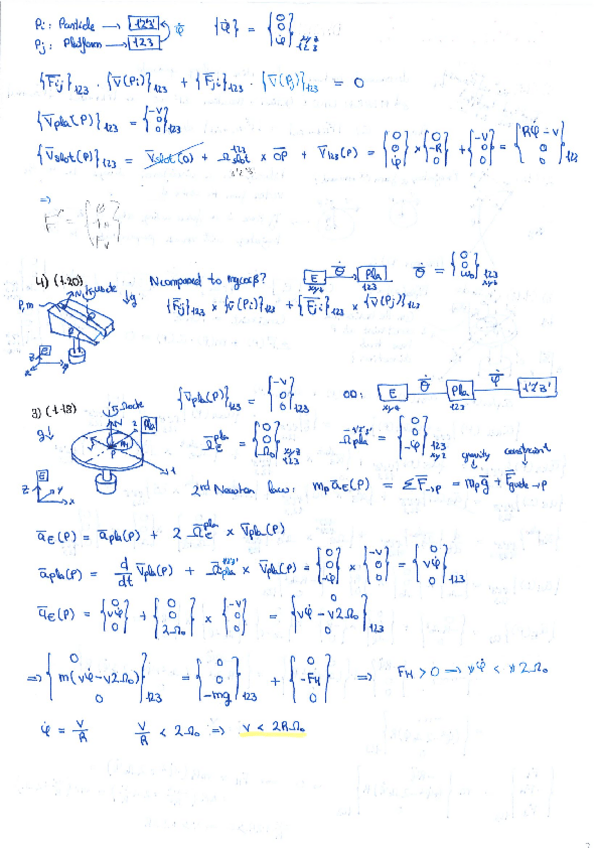 Pi: Particle → 1'2'3' φ̇ {φ̇} = {0 0 φ̇} 123
Pj: Platform → 123
{F̄ij}123 · {v̄(Pi)}123 + {F̄ji}123 · {v̄(Pj)}123 = 0
{v̄pla(P)}123 = {-v 0 0}123
{v̄slot(P)}123 = v̄slot(O) + Ω̄slot 123 1'2'3' × OP + v̄123(P) = {0 0 φ̇} × {0 -R 0} + {-v 0 0} = {Rφ̇-v 0 0}123
⇒
F = {0
4) (1.20) N compared to mgcosβ? E xyz θ̇ Pla 123 θ̇ = {0 0 ω0} 123 xyz
P,m N g {F̄ij}123 × {v̄(Pi)}123 + {F̄ji}123 × {v̄(Pj)}123
E
3) (1.18) {v̄pla(P)}123 = {-v 0 0}123 OD: E xyz θ̇ Pla 123 φ̇ 1'2'3'
g↓ N 2 Pla P 1 Ω̄E pla = {0 0 Ω0} xyz 123 Ω̄pla 1'2'3' = {0 0 -φ̇} 123 xyz gravity constraint
E z y x 2nd Newton law: mp āE(P) = ΣF̄→P = mpḡ + F̄guide→P
āE(P) = āpla(P) + 2 Ω̄E pla × v̄pla(P)
āpla(P) = d/dt v̄pla(P) + Ω̄pla 1'2'3' × v̄pla(P) = {0 0 -φ̇} × {-v 0 0} = {0 vφ̇ 0}123
āE(P) = {0 vφ̇ 0} + {0 0 2Ω0} × {-v 0 0} = {0 vφ̇-v2Ω0 0}123
⇒ {0 m(vφ̇-v2Ω0) 0}123 = {0 0 -mg}123 + {0 -FH 0} ⇒ FH > 0 → vφ̇ < v2Ω0
φ̇ = v/R v/R < 2Ω0 ⇒ v < 2RΩ0